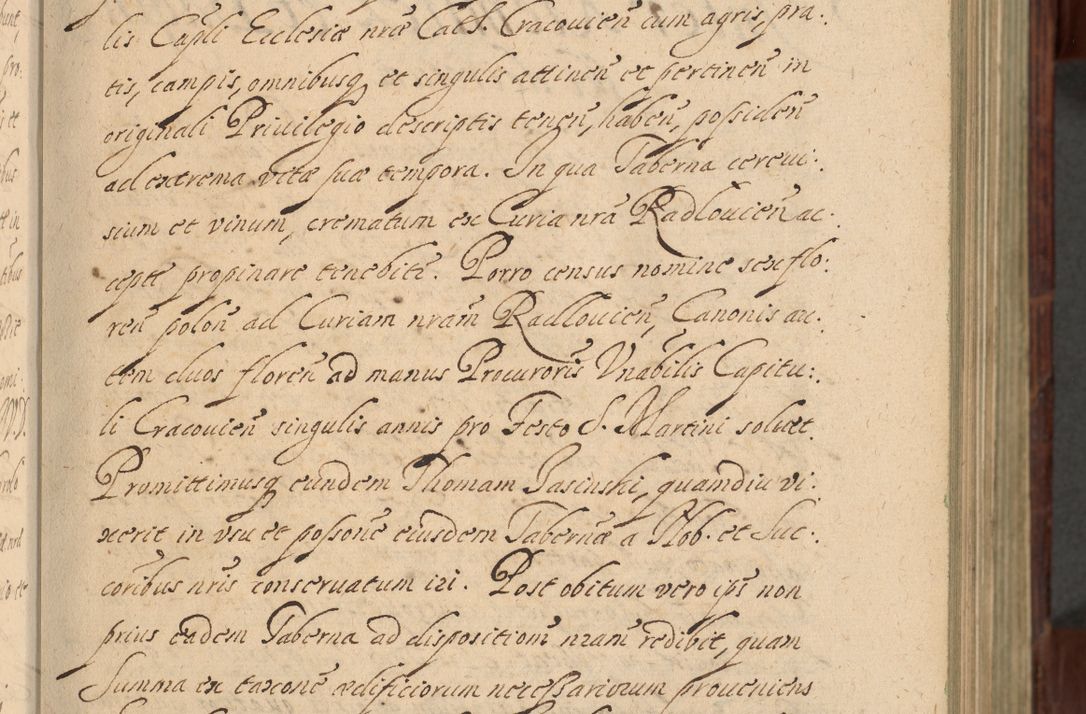 lis Capli Ecclesiæ nræ Cath. Cracovien̄ cum agris, pra:
tis, campis, omnibusq, et singulis attinen̄ et pertinen̄ in
originali Privilegio descriptis tenen̄, haben̄, possiden̄
ad extrema vitæ suæ tempora. In qua Taberna cerevi:
sium et vinum, crematum ex Curia nrā Radlovien̄ ac:
cepte propinare tenebitē. Porro census nomine sex flo:
ren̄ polon̄ ad Curiam nram̄ Radlovien̄, Canonis au:
tem duos floren̄ ad manus Procuroris̄ Vnabilis Capitu:
li Cracovien̄ singulis annis pro Festo S. Martini solvet.
Promittimusq eundem Thomam Jasinski, quandiu vi:
xerit in usu et possone eiusdem Tabernæ a Nob. et Suc:
coribus nris conservatum iri. Post obitum vero ips̄ non
prius eadem Taberna ad dispositiom̄ nram̄ redibit, quam
Summa ex taxone ædificiorum necessariorum proveniens